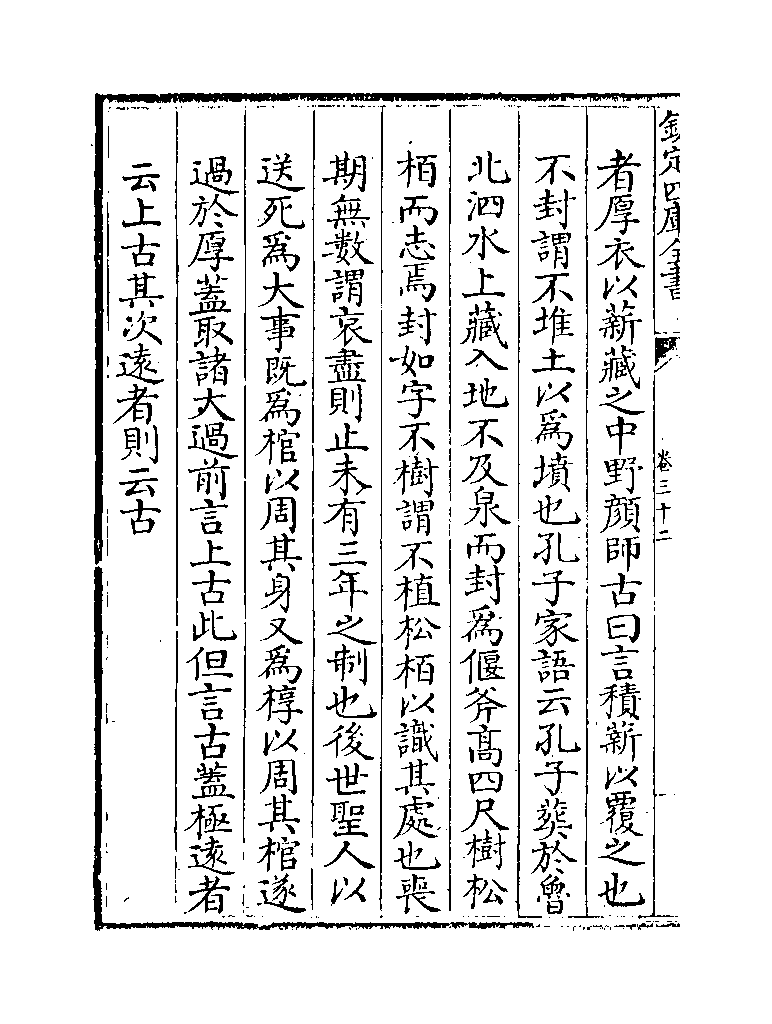 欽定四庫全書
卷三十二
者厚衣以薪藏之中野顔師古曰言積薪以覆之也
不封謂不堆土以爲墳也孔子家語云孔子葬於魯
北泗水上藏入地不及泉而封爲偃斧髙四尺樹松
栢而志焉封如字不樹謂不植松栢以識其處也喪
期無數謂哀盡則止未有三年之制也後世聖人以
送死爲大事既爲棺以周其身又爲椁以周其棺遂
過於厚蓋取諸大過前言上古此但言古蓋極逺者
云上古其次逺者則云古